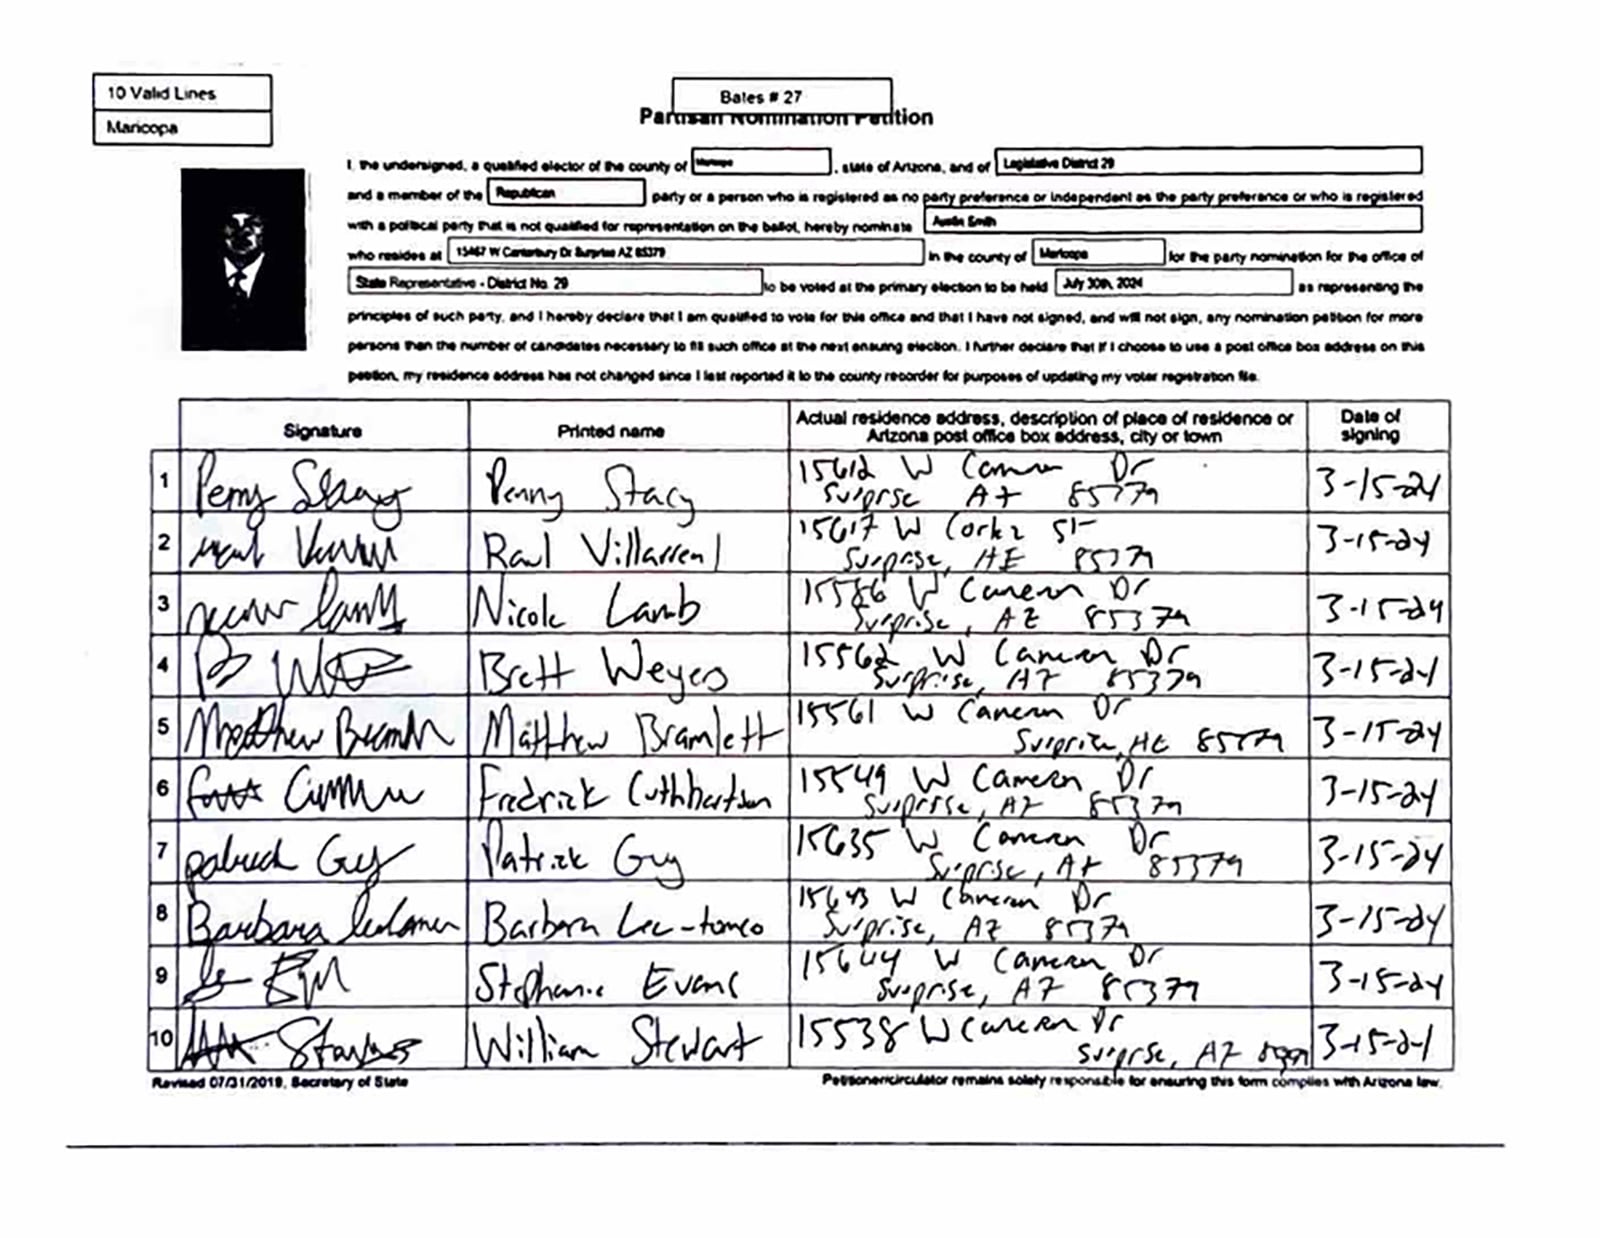 10 Valid Lines
Maricopa
Bates # 27
Partisan Nomination Petition
I, the undersigned, a qualified elector of the county of Maricopa, state of Arizona, and of Legislative District 29
and a member of the Republican party or a person who is registered as no party preference or independent as the party preference or who is registered
with a political party that is not qualified for representation on the ballot, hereby nominate Austin Smith
who resides at 15467 W Canterbury Dr Surprise AZ 85379 in the county of Maricopa for the party nomination for the office of
State Representative - District No. 29 to be voted at the primary election to be held July 30th, 2024 as representing the
principles of such party, and I hereby declare that I am qualified to vote for this office and that I have not signed, and will not sign, any nomination petition for more
persons than the number of candidates necessary to fill such office at the next ensuing election. I further declare that if I choose to use a post office box address on this
petition, my residence address has not changed since I last reported it to the county recorder for purposes of updating my voter registration file.
Signature Printed name Actual residence address, description of place of residence or Date of
Arizona post office box address, city or town signing
1 Penny Stacy Penny Stacy 15612 W Cameron Dr 3-15-24
Surprse AZ 85379
2 Raul Villarreal 15617 W St 3-15-24
Surprise, AZ 85379
3 Lamb Nicole Lamb 15586 W Cameron Dr 3-15-24
Surprise, AZ 85379
4 Brett Weyers 15562 W Cameron Dr 3-15-24
Surprise, AZ 85379
5 Matthew Matthew Bramlett 15561 W Cameron Dr 3-15-24
Surprise, AZ 85379
6 Fredrick Cuthbertson 15549 W Cameron Dr 3-15-24
Surprise, AZ 85379
7 Patrick Guy Patrick Guy 15635 W Cameron Dr 3-15-24
Surprise, AZ 85379
8 Barbara Barbara Lee-tomeo 15643 W Cameron Dr 3-15-24
Surprise, AZ 85379
9 Stephanie Evans 15644 W Cameron Dr 3-15-24
Surprise, AZ 85379
10 William Stewart 15538 W Cameron Dr 3-15-24
Surprse, AZ
Revised 07/31/2019, Secretary of State Petitioner/circulator remains solely responsible for ensuring this form complies with Arizona law.